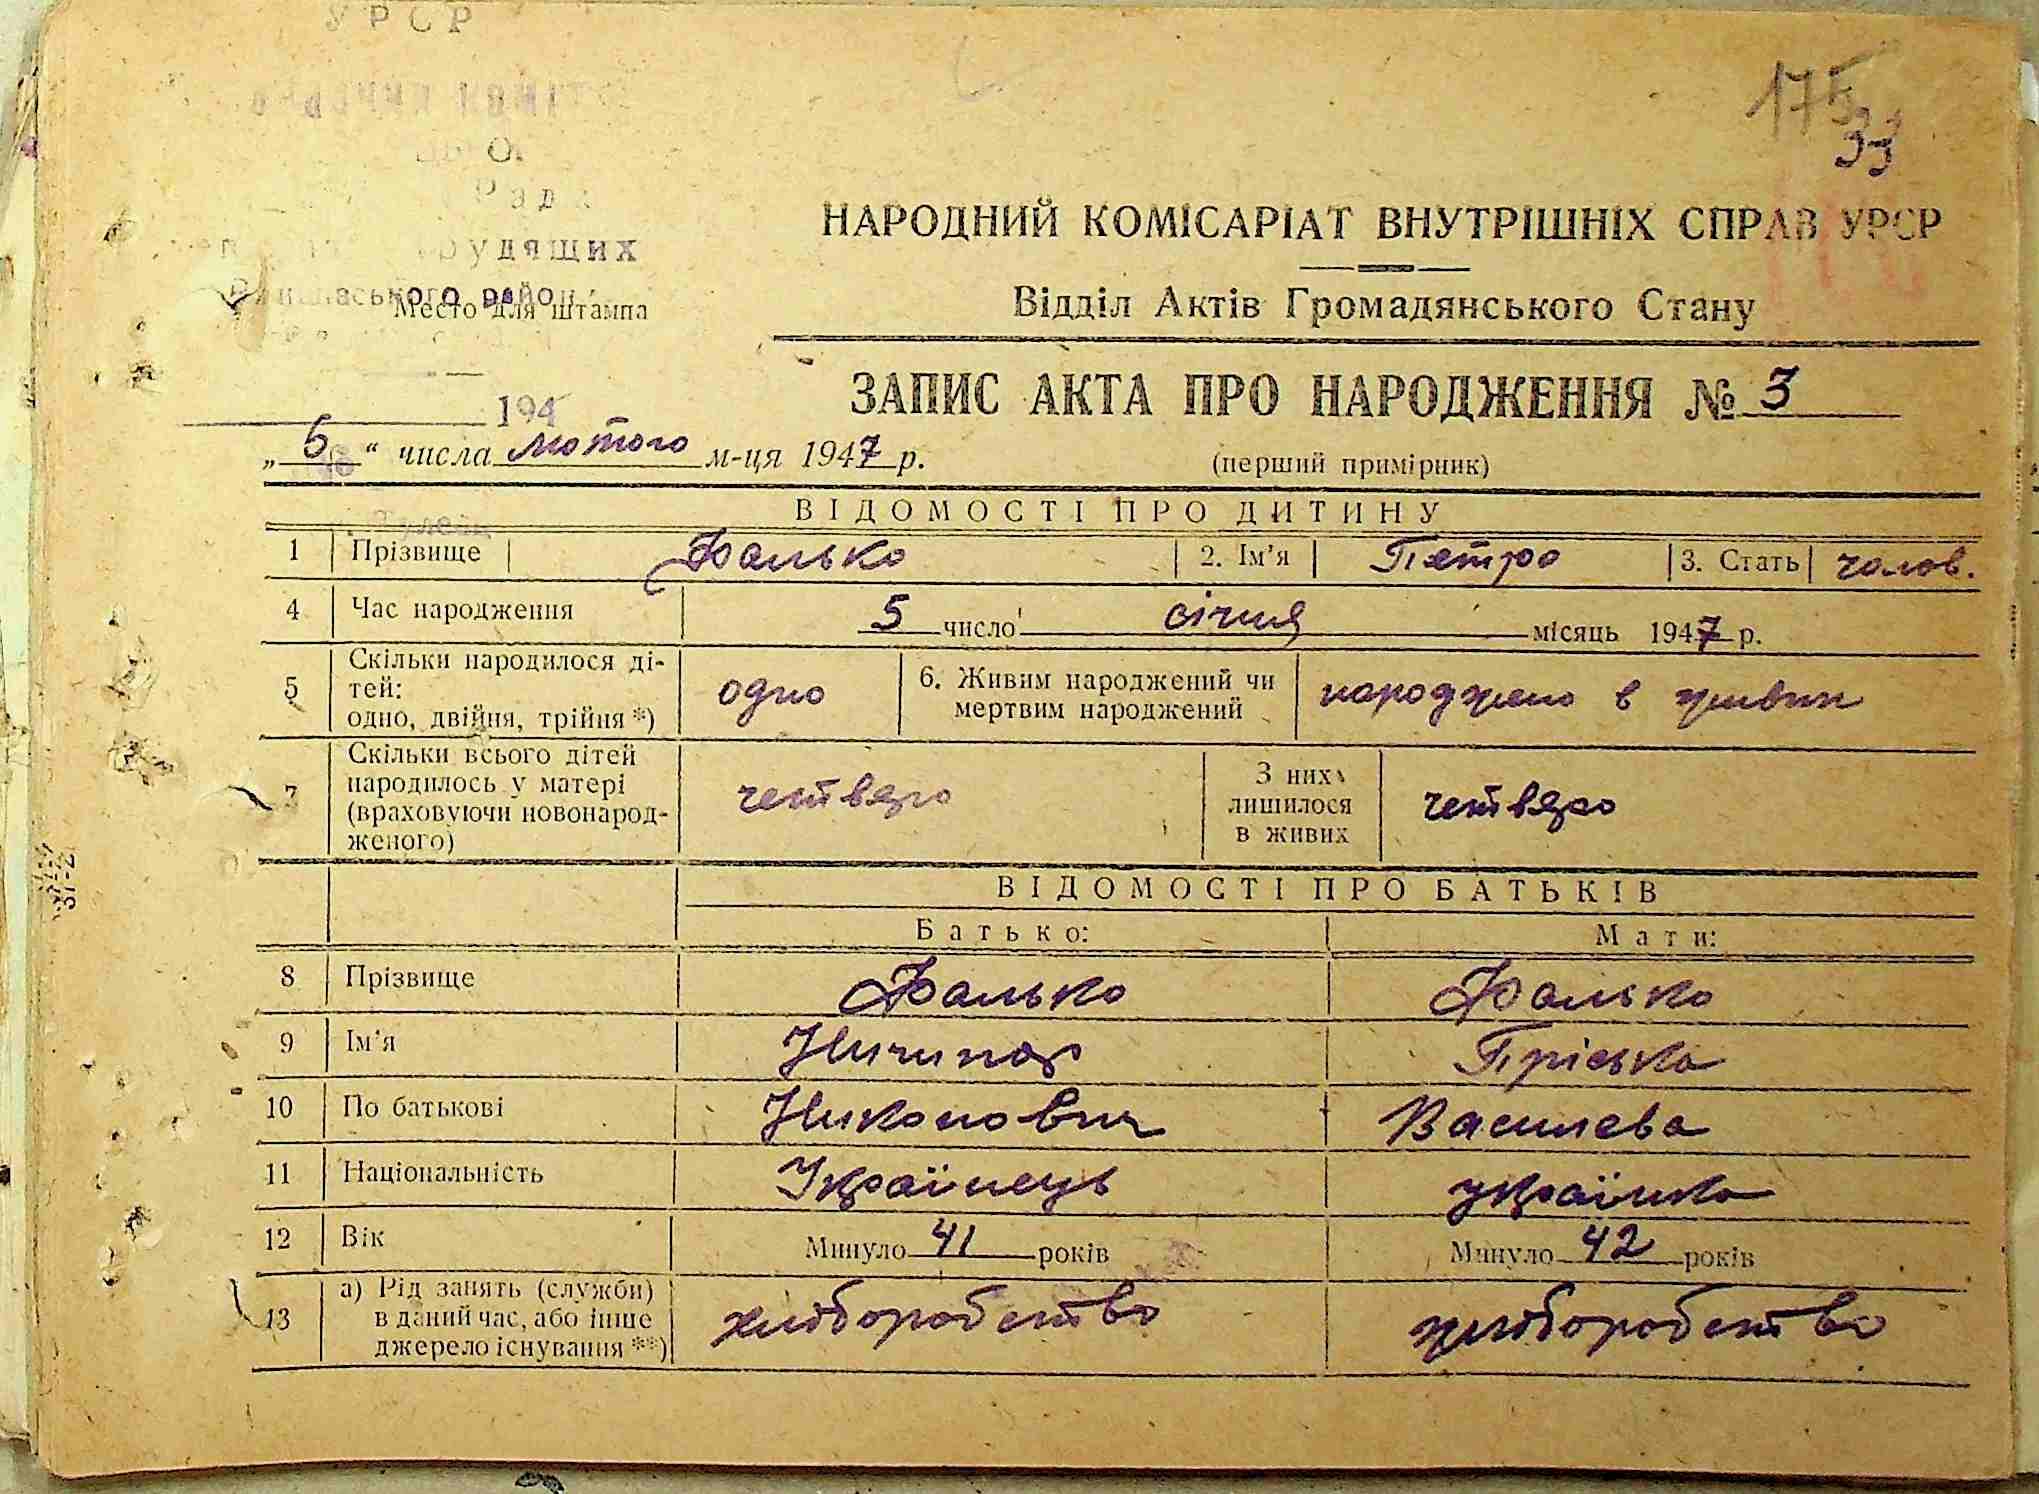 УРСР
175
33
Рад
трудящих
НАРОДНИЙ КОМІСАРІАТ ВНУТРІШНІХ СПРАВ УРСР
району
Место для штампа
Відділ Актів Громадянського Стану
194
ЗАПИС АКТА ПРО НАРОДЖЕННЯ № 3
„5“ числа лютого м-ця 1947 р.
(перший примірник)
ВІДОМОСТІ ПРО ДИТИНУ
1 Прізвище Фалько 2. Ім'я Петро 3. Стать чолов.
4 Час народження 5 число січня місяць 1947 р.
5 Скільки народилося ді-
тей:
одно, двійня, трійня *) одно 6. Живим народжений чи
мертвим народжений народжено в живих
7 Скільки всього дітей
народилось у матері
(враховуючи новонарод-
женого) четверо З них
лишилося
в живих четверо
ВІДОМОСТІ ПРО БАТЬКІВ
Батько: Мати:
8 Прізвище Фалько Фалько
9 Ім'я Ничипор Пріська
10 По батькові Никонович Василева
11 Національність Українець українка
12 Вік Минуло 41 років Минуло 42 років
13 а) Рід занять (служби)
в даний час, або інше
джерело існування **) хліборобство хліборобство